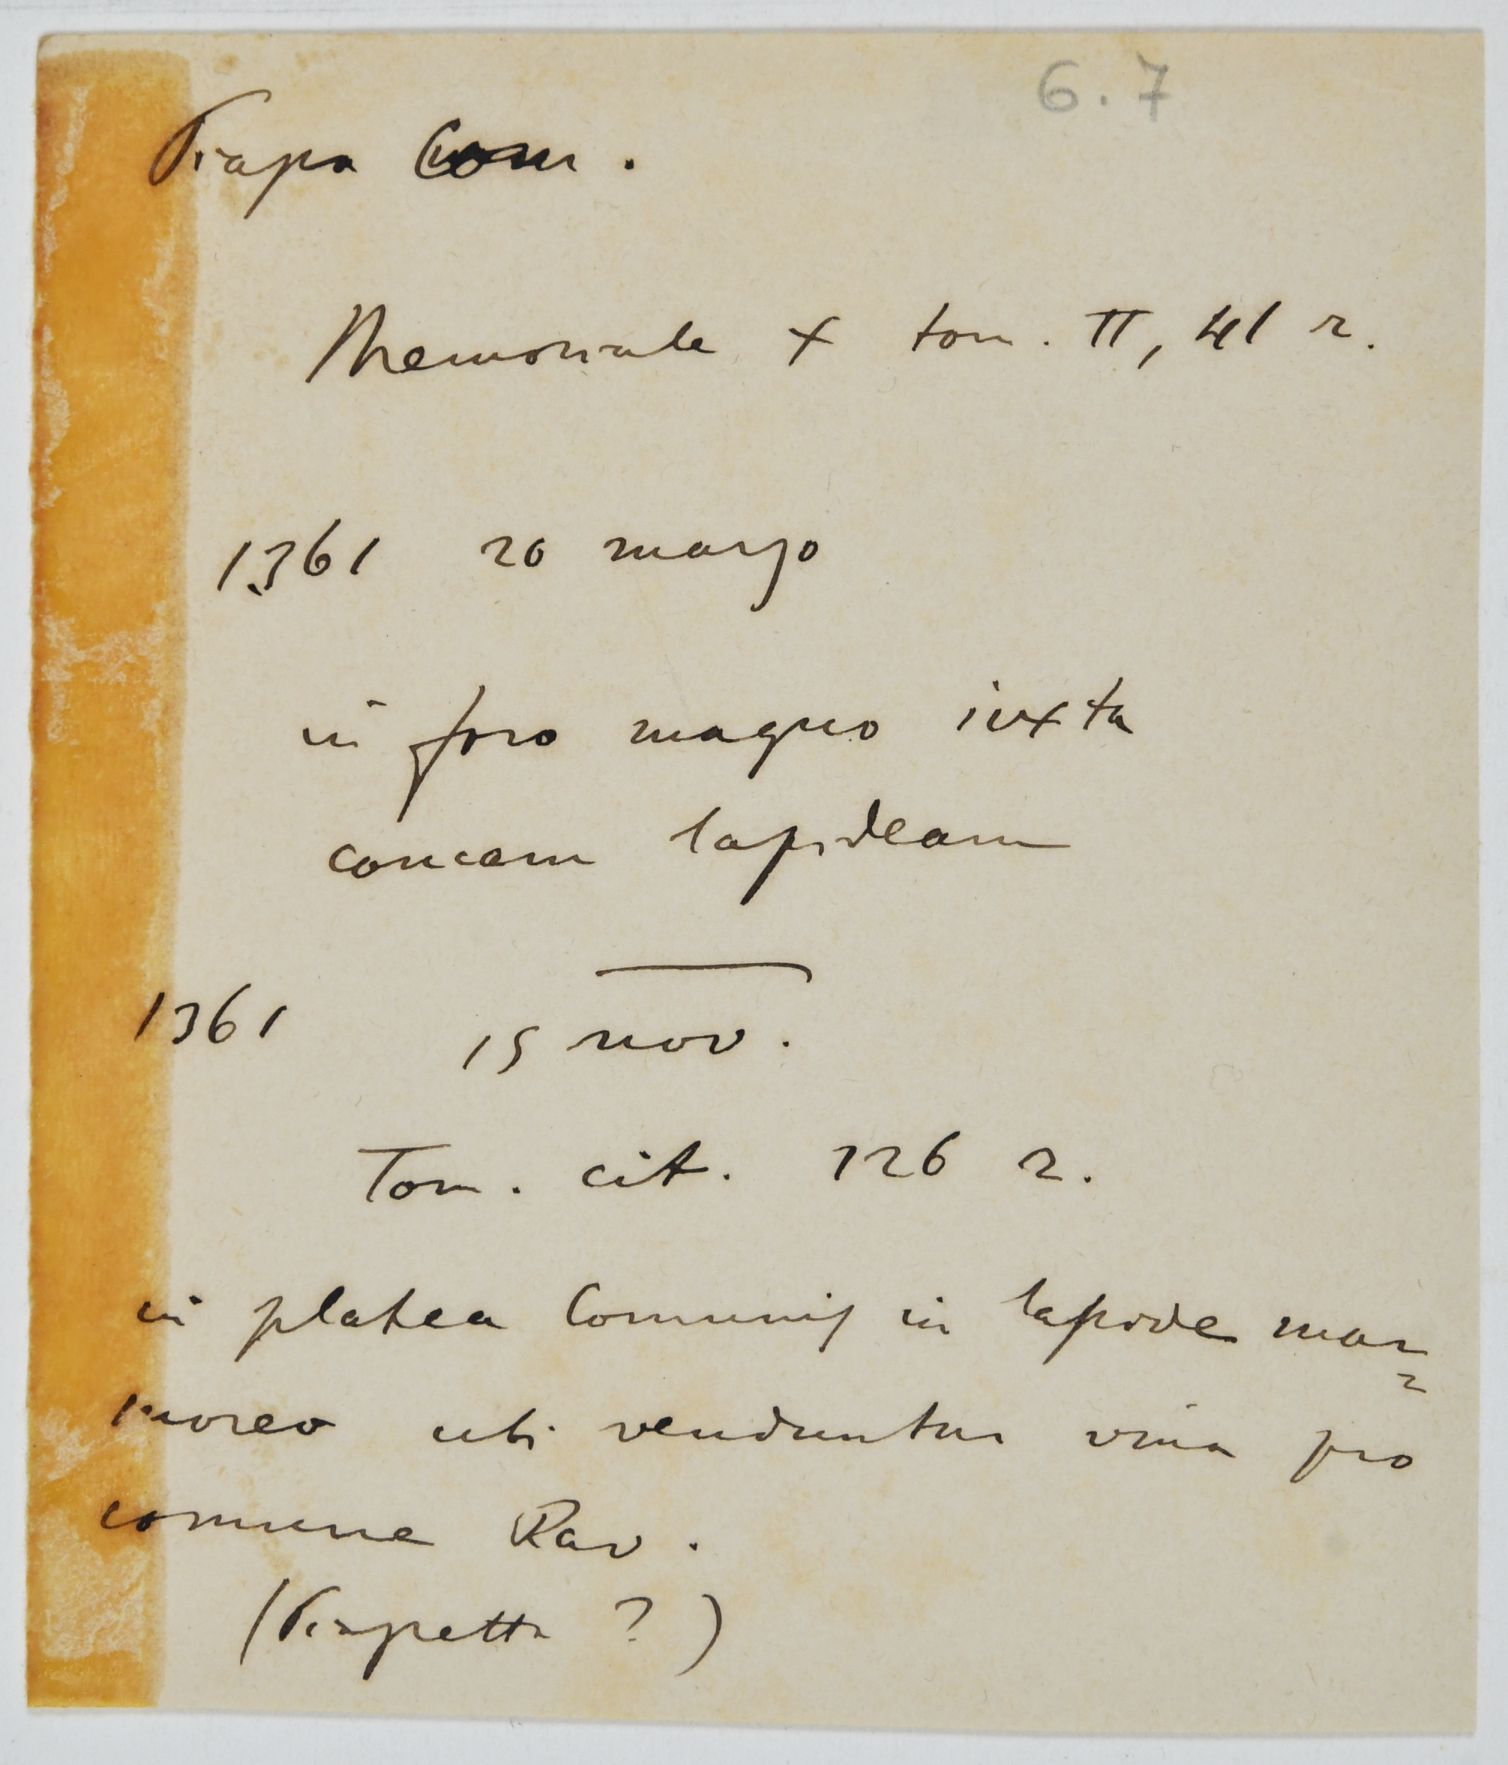 6.7
Piazza Com.
Memoriale X tom. II, 41 r.
1361 20 marzo
in foro magno iuxta
concam lapideam
1361 15 nov.
Tom. cit. 126 r.
in platea Comunis in lapide mar=
moreo ubi venduntur vina pro
comune Rav.
(Piazzetta ?)